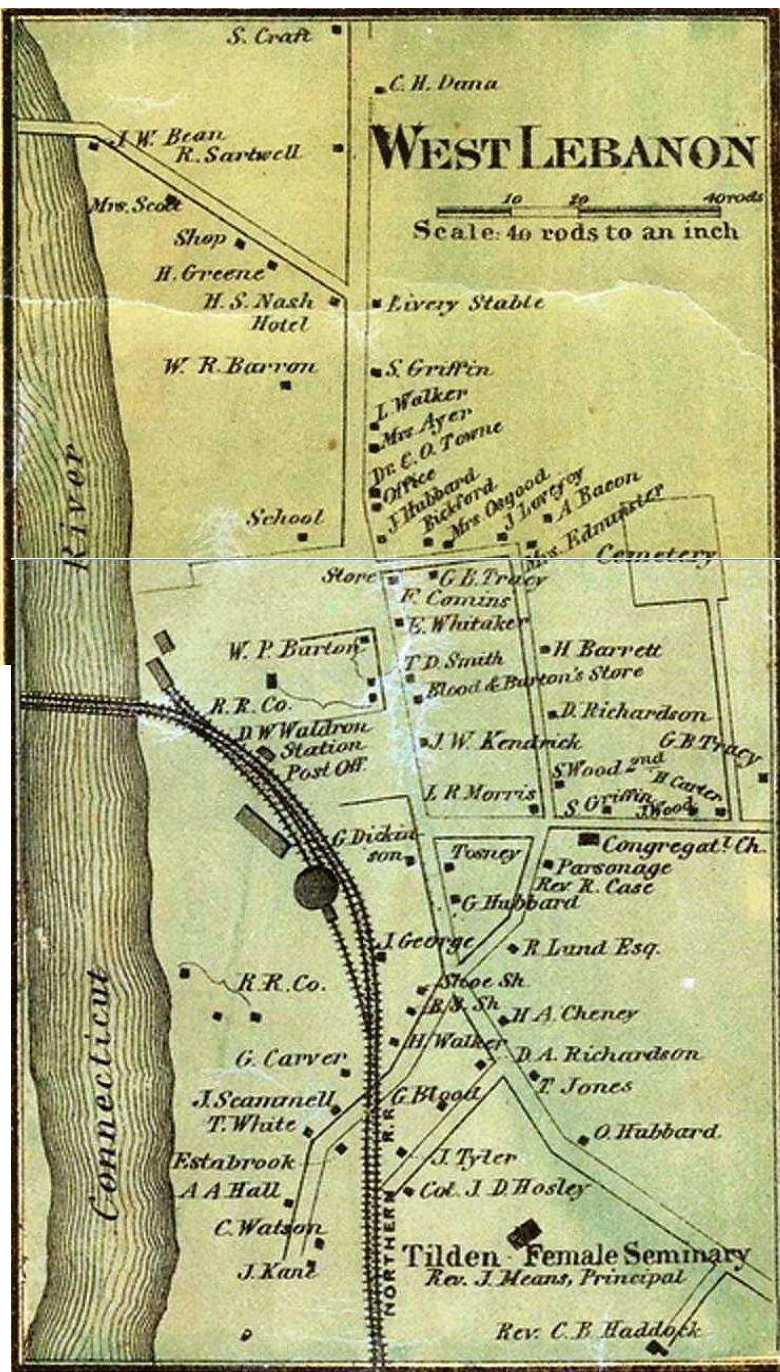 S. Craft
C. H. Dana
WEST LEBANON
J. W. Bean
R. Sartwell
10 20 40 rods
Scale: 40 rods to an inch
Mrs. Scott
Shop
H. Greene
H. S. Nash
Hotel
Livery Stable
W. R. Barron
S. Griffin
L Walker
Mrs. Ayer
Dr. C. O. Towne
Office
J Hubbard
Bickford
Mrs Osgood
J Lovejoy
A Bacon
Mrs. Edmunster
School
Cemetery
River
Store
G. B. Tracy
F. Comins
E. Whitaker
W. P. Burton
H Barrett
T D. Smith
Blood & Burton's Store
R. R. Co.
D. Richardson
D. W Waldron
Station
Post Off.
J. W. Kendrick
G B Tracy
S Wood 2nd
H Carter
L R Morris
S. Griffin
J. Wood
G Dickin
son
Tosney
Congregatl. Ch.
Parsonage
Rev R. Case
G Hubbard
I George
R. Lund Esq.
R. R. Co.
Shoe Sh
B. S. Sh
H A. Cheney
H. Walker
G. Carver
D. A. Richardson
T. Jones
J. Scammell
G. Blood
T. White
O. Hubbard.
Estabrook
J. Tyler
A A Hall
Col. J. D. Hosley
C. Watson
J. Kane
Connecticut
NORTHERN R.R.
Tilden Female Seminary
Rev. J. Means, Principal
Rev. C. B. Haddock